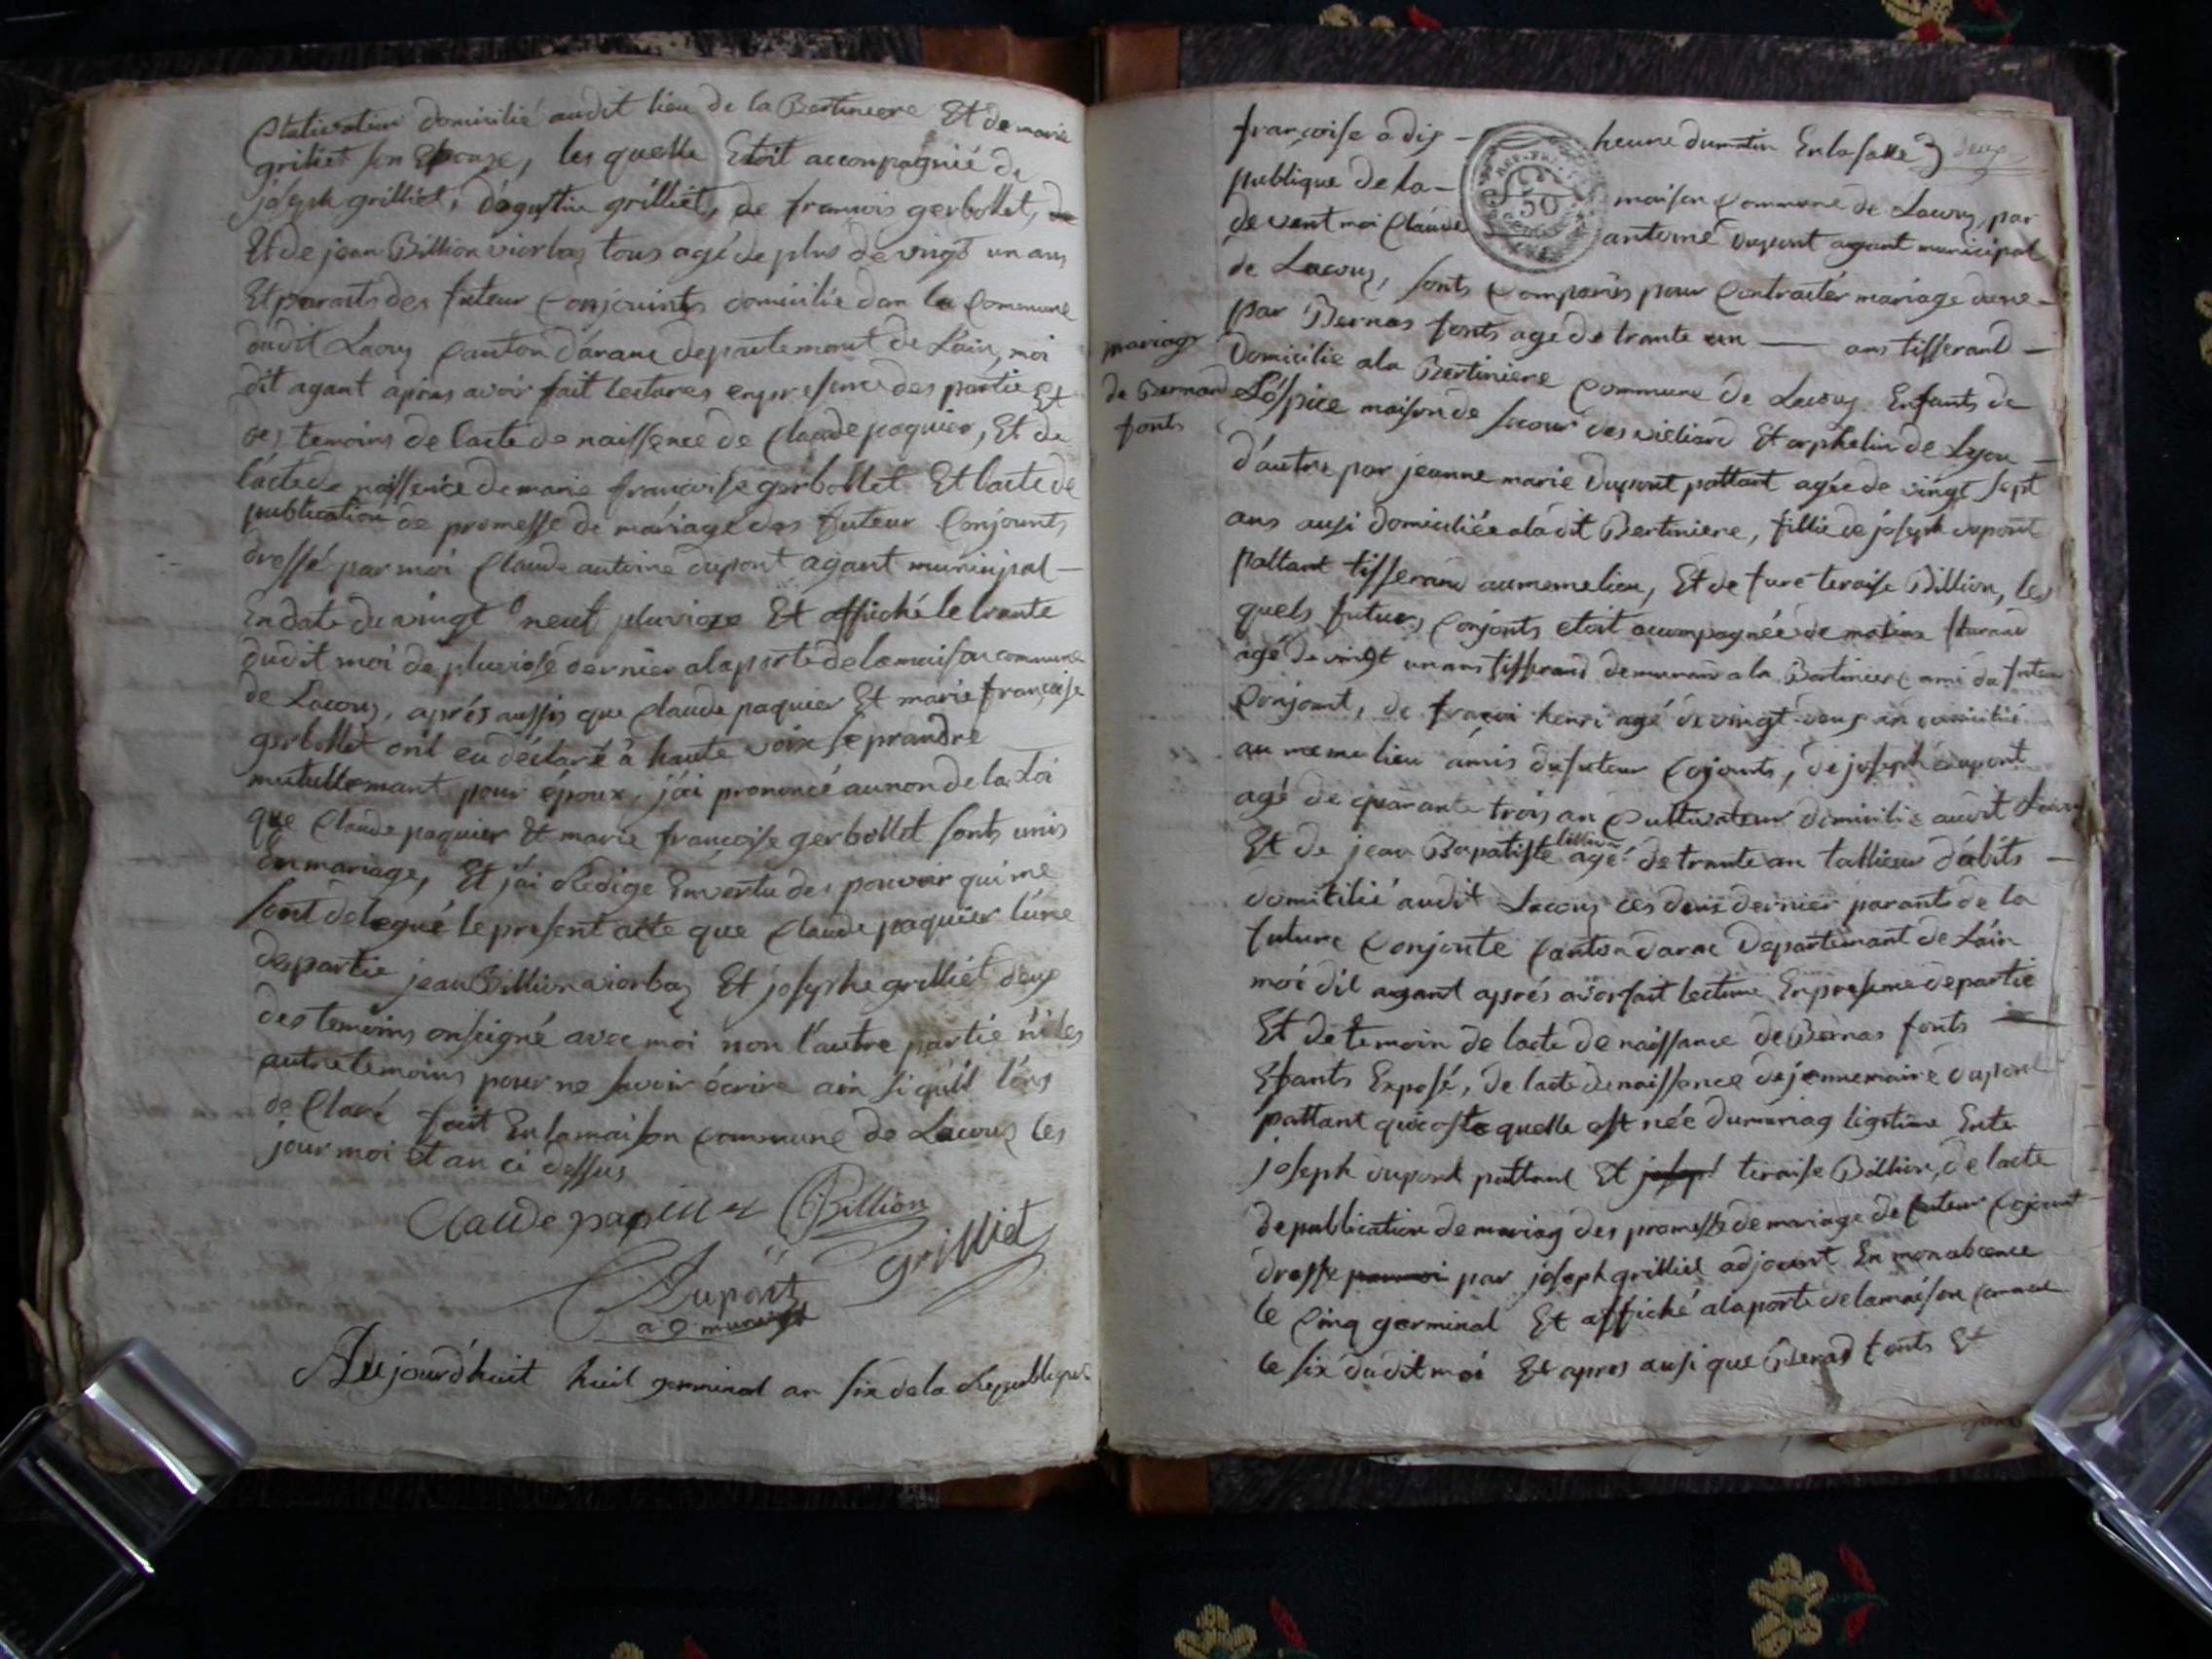 Cultivateur domicilié audit lieu de la Bertiniere Et de marie
griliet son Epouse, les quelle Etoit accompagnié de
joseph grilliet, d'agustin grilliet, de francois gerbollet, de
Et de jean Billion viorbaz tous agé de plus de vingt un ans
Et parants des futeur Conjouints domicilié dan la Commune
dudit Lacouz Canton d'aranc departement de L'ain, moi
dit agant apres avoir fait lectures en presence des partie Et
des temoins de lacte de naissence de Claude paquier, Et de
l'acte de naissence de marie francoise gerbollet Et lacte de
publication de promesse de mariage des futeur Conjounts
dressé par moi Claude antoine dupont agant municipal
En date du vingt neuf pluvioze Et affiché le trante
dudit moi de pluviose dernier a la porte de la maison commune
de Lacouz, aprés aussis que Claude paquier Et marie françoise
gerbollet onl eu déclaré à haute voix se prandre
mutuellemant pour époux, j'ai prononcé au non de la Loi
que Claude paquier Et marie françoise gerbollet sonts unis
En mariage, Et j'ai Redige En vertu des pouvoir qui me
sont delegué le present acte que Claude paquier l'une
des partie jean Billion viorbaz Et josephe grilliet deux
des temoins on signé avec moi non l'autre partié ni les
autre temoins pour ne savoir écrire ain si qu'il l'ons
de Claré fait En la maison commune de Lacouz les
jour moi Et an ci dessus
Claude paquier Billion
grilliet
Dupont
ag municipal
Aujourd'huit huit germinal an six de la Republique
françoise a dix heure du matin En la salle
publique de la maison Commune de Lacouz, par
de vent moi Claude antoine dupont agant municipal
de Lacouz, sonts Comparus pour Contracter mariage dune
par Bernas fonts age de trante un ans tisserand
mariage
de Bernard
fonts
Domicilie a la Bertiniere Commune de Lacouz. Enfants de
L'óspice maison de secour des vieliard Et orphelin de Lyon
d'autre par jeanne marie Dupont pattant agée de vingt sept
ans ausi domiciliée a la dit Bertiniere, fillie de joseph dupont
pattant tisserand au meme lieu, Et de fure teraise Billion, les
quels futurs Conjonts etoit acompagnée de
agé de vingt un ans tisserand demurand a la Bertiniere ami du futeur
Conjount, de françoi henri agé de vingt deux an domicilié
au meme lieu amis du futeur Cojounts, de joseph dupont
agé de quarante trois an Cultivateur domicilie audit Lacouz
Et de jean Bapatiste billion agé de trante an tallieur d'abits
domicilié audit Lacouz ces deux dernier parants de la
future Conjonte Canton darnc Departemant de L'ain
moi dit agant aprés avoir fait lecture En presence de partie
Et de temoin de lacte de naissance de Bernas fonts
Efants Exposé, de lacte de naissence de jennemaire dupont
pattant qui coste quelle est née du mariag ligitime Ente
joseph dupont pattant Et josep teraise Billion, de lacte
de publication de mariag des promesse de mariage de futeur Cojount
dresse par moi par joseph grilliet adjount En mon abcence
le Cinq germinal Et affiché a la porte de la maison commune
le six du dit moi Et apres ausi que Berad fonts Et